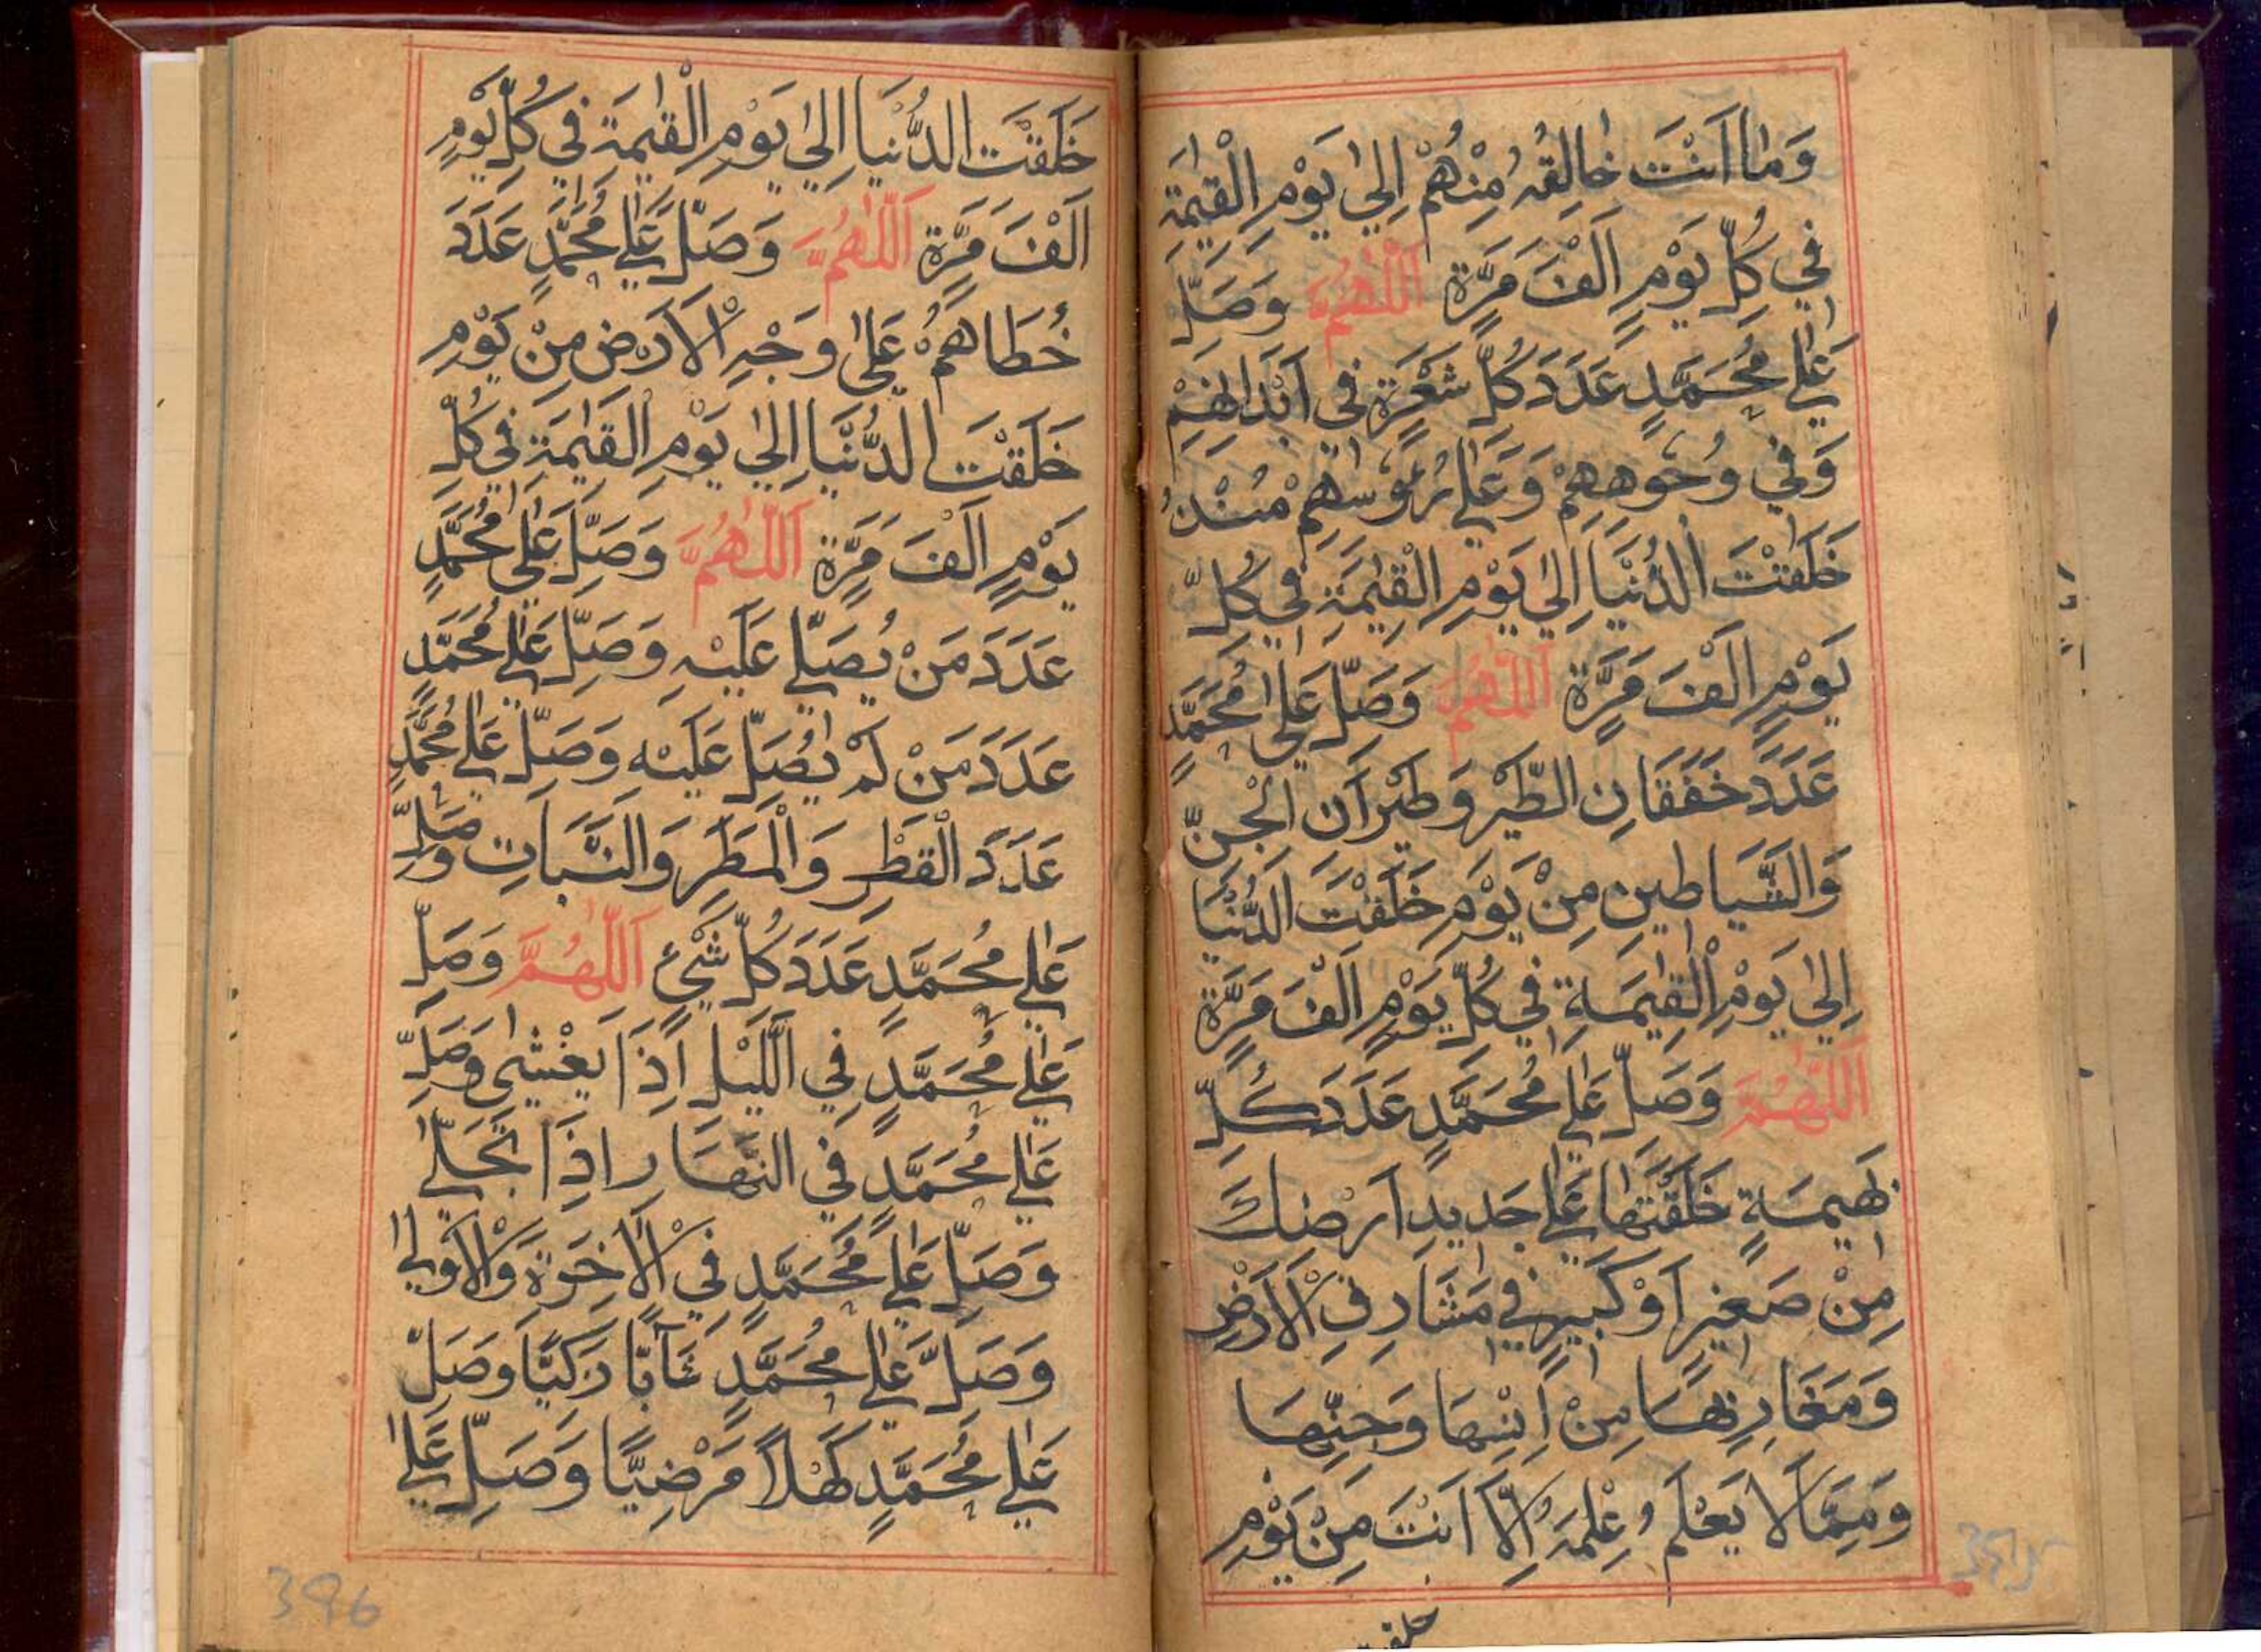 وَمٰا اَنْتَ خٰالِقُهُ مِنْهُمْ اِلىٰ يَوْمِ الْقِيٰمَةِ
فِي كُلِّ يَوْمٍ اَلْفَ مَرَّةٍ اَللّٰهُمَّ وَصَلِّ
عَلٰي مُحَمَّدٍ عَدَدَ كُلِّ شَعْرَةٍ فِى اَبْدَانِهِمْ
وَفِي وُجُوهِهِمْ وَعَلٰي رُءُوسِهِمْ مُنْذُ
خَلَقْتَ الدُّنْيَا اِلىٰ يَوْمِ الْقِيٰمَةِ فِي كُلِّ
يَوْمٍ اَلْفَ مَرَّةٍ اَللّٰهُمَّ وَصَلِّ عَلٰي مُحَمَّدٍ
عَدَدَ خَفَقَانِ الطَّيْرِ وَطَيَرَانِ الْجِنِّ
وَالشَّيَاطِينِ مِنْ يَوْمِ خَلَقْتَ الدُّنْيَا
اِلىٰ يَوْمِ الْقِيٰمَةِ فِي كُلِّ يَوْمٍ اَلْفَ مَرَّةٍ
اَللّٰهُمَّ وَصَلِّ عَلٰي مُحَمَّدٍ عَدَدَ كُلِّ
بَهِيمَةٍ خَلَقْتَهَا عَلٰي جَدِيدِ اَرْضِكَ
مِنْ صَغِيرٍ اَوْ كَبِيرٍ فِي مَشَارِقِ الْاَرْضِ
وَمَغَارِبِهَا مِنْ اِنْسِهَا وَجِنِّهَا
وَمِمَّا لَا يَعْلَمُ عِلْمَهُ اِلَّا اَنْتَ مِنْ يَوْمِ
خلقت
خَلَقْتَ الدُّنْيَا اِلىٰ يَوْمِ الْقِيٰمَةِ فِي كُلِّ يَوْمٍ
اَلْفَ مَرَّةٍ اَللّٰهُمَّ وَصَلِّ عَلٰي مُحَمَّدٍ عَدَدَ
خُطَاهُمْ عَلىٰ وَجْهِ الْاَرْضِ مِنْ يَوْمِ
خَلَقْتَ الدُّنْيَا اِلىٰ يَوْمِ الْقِيٰمَةِ فِي كُلِّ
يَوْمٍ اَلْفَ مَرَّةٍ اَللّٰهُمَّ وَصَلِّ عَلٰى مُحَمَّدٍ
عَدَدَ مَنْ يُصَلِّي عَلَيْهِ وَصَلِّ عَلٰي مُحَمَّدٍ
عَدَدَ مَنْ لَمْ يُصَلِّ عَلَيْهِ وَصَلِّ عَلٰي مُحَمَّدٍ
عَدَدَ الْقَطْرِ وَالْمَطَرِ وَالنَّبَاتِ وَصَلِّ
عَلٰي مُحَمَّدٍ عَدَدَ كُلِّ شَيْءٍ اَللّٰهُمَّ وَصَلِّ
عَلٰي مُحَمَّدٍ فِي الَّيْلِ اِذَا يَغْشٰى وَصَلِّ
عَلٰي مُحَمَّدٍ فِي النَّهَارِ اِذَا تَجَلّٰي
وَصَلِّ عَلٰي مُحَمَّدٍ فِي الْاٰخِرَةِ وَالْاُوْلٰي
وَصَلِّ عَلٰي مُحَمَّدٍ شَآبًّا زَكِيًّا وَصَلِّ
عَلٰي مُحَمَّدٍ كَهْلًا مَرْضِيًّا وَصَلِّ عَلٰي
396